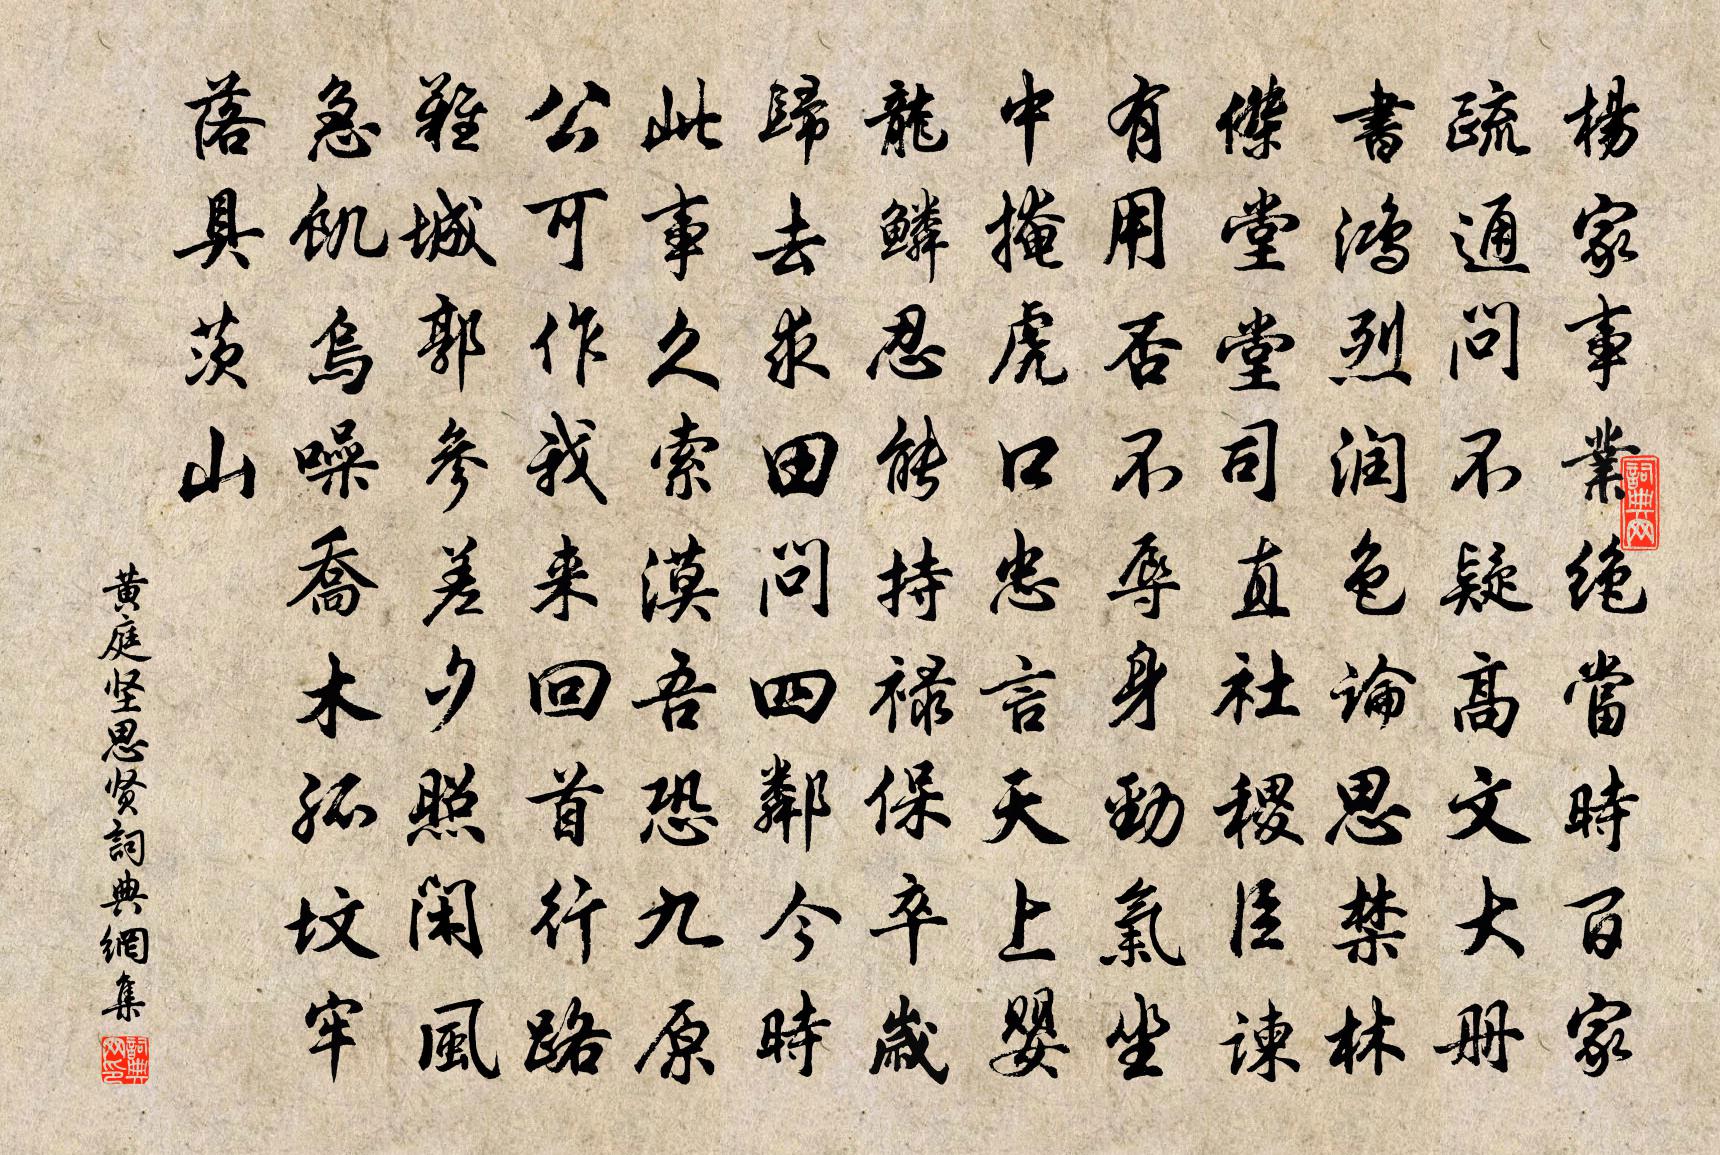 楊家事業絶當時百家
疏通問不疑高文大册
書鴻烈润色論思禁林
傑堂堂司直社稷臣諫
有用否不辱身勁氣坐
中掩虎口忠言天上嬰
龍鱗忍能持禄保卒歳
歸去求田問四鄰今時
此事久索漠吾恐九原
公可作我来回首行路
難城郭參差夕照闲風
急飢烏噪喬木孤坟牢
落具茨山
黄庭坚思贤詞典網集
詞典网
詞典网印